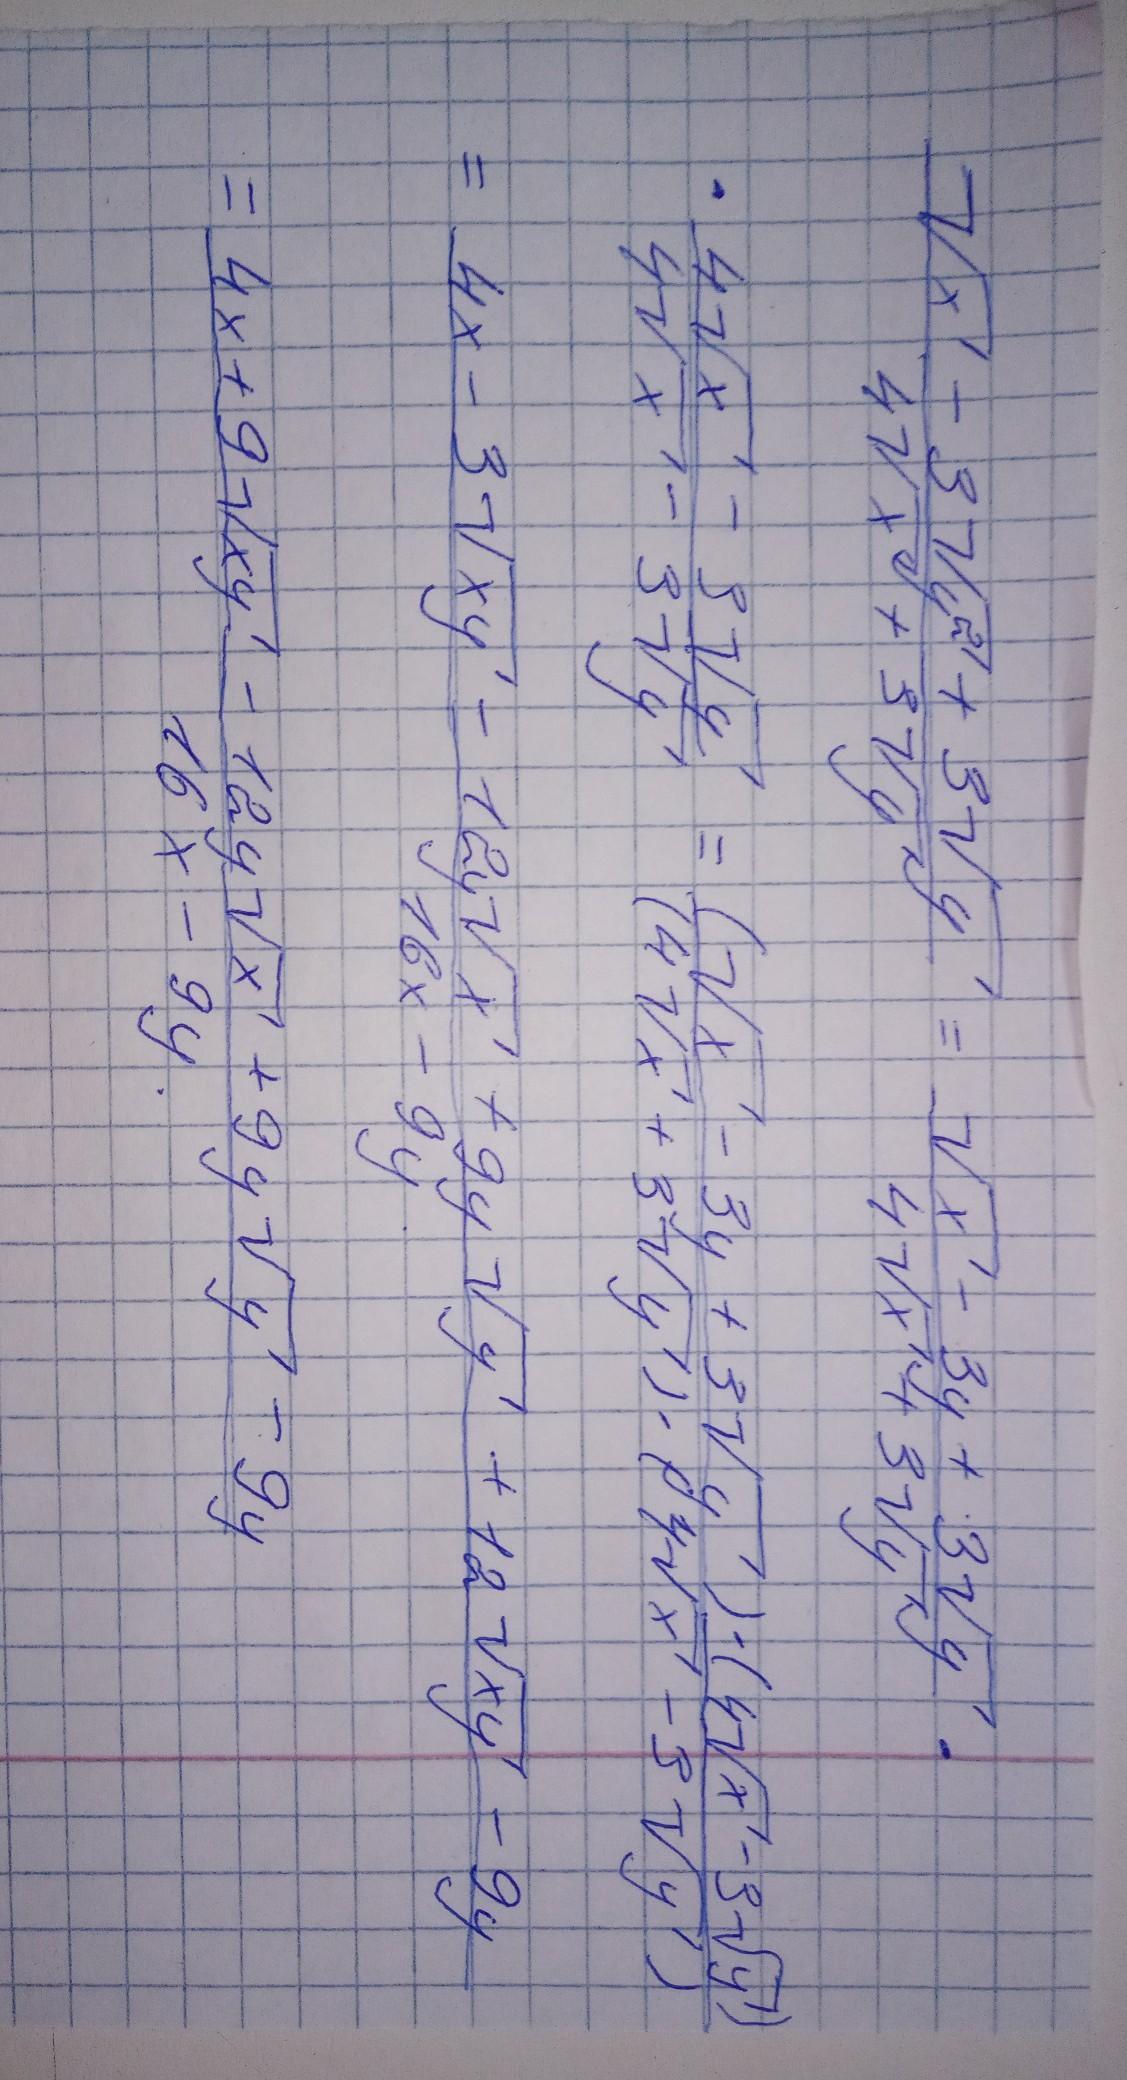 √x - 3√y² + 3√y = √x - 3y + 3√y ·
4√x + 3√y 4√x + 3√y
· 4√x - 3√y = (√x - 3y + 3√y) · (4√x - 3√y)
4√x - 3√y (4√x + 3√y) · (4√x - 3√y)
= 4x - 3√xy - 12y√x + 9y√y + 12√xy - 9y
16x - 9y
= 4x + 9√xy - 12y√x + 9y√y - 9y
16x - 9y.